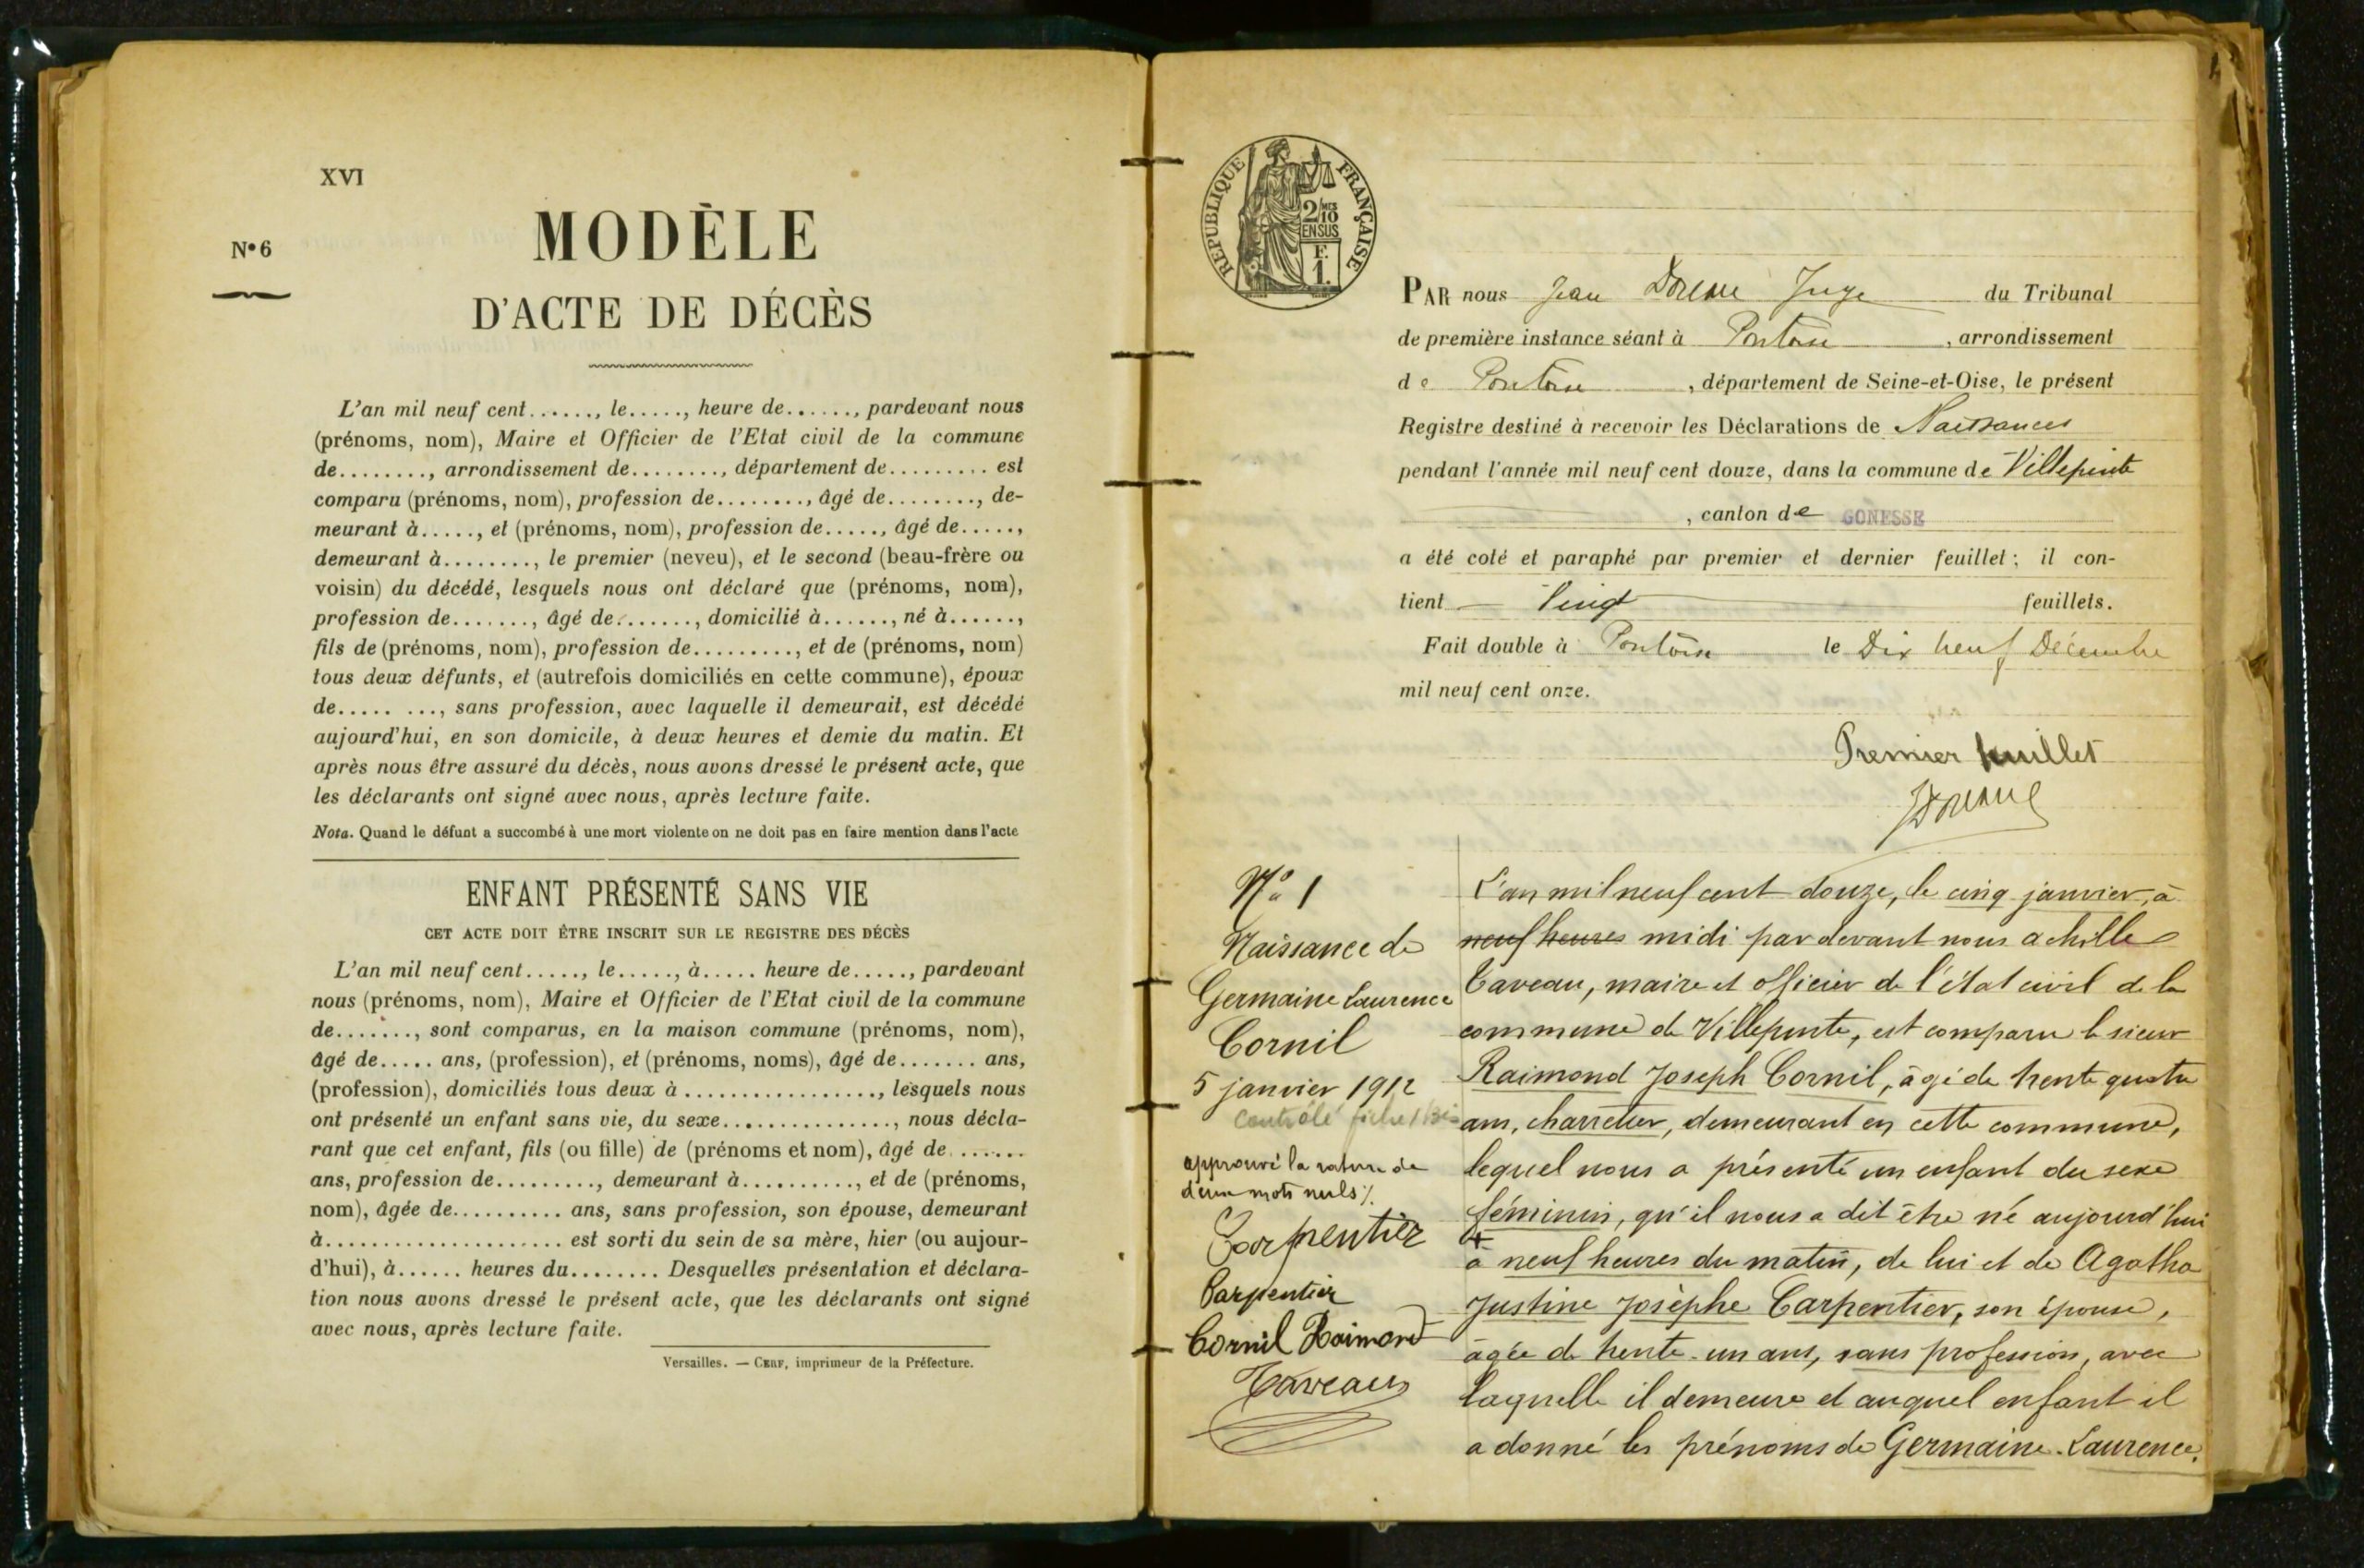 XVI
N° 6
MODÈLE
D'ACTE DE DÉCÈS
L'an mil neuf cent......, le....., heure de......, pardevant nous
(prénoms, nom), Maire et Officier de l'Etat civil de la commune
de........, arrondissement de........, département de......... est
comparu (prénoms, nom), profession de........, âgé de........, de-
meurant à....., et (prénoms, nom), profession de....., âgé de.....,
demeurant à........, le premier (neveu), et le second (beau-frère ou
voisin) du décédé, lesquels nous ont déclaré que (prénoms, nom),
profession de......., âgé de......., domicilié à......, né à......,
fils de (prénoms, nom), profession de........., et de (prénoms, nom)
tous deux défunts, et (autrefois domiciliés en cette commune), époux
de..... ..., sans profession, avec laquelle il demeurait, est décédé
aujourd'hui, en son domicile, à deux heures et demie du matin. Et
après nous être assuré du décès, nous avons dressé le présent acte, que
les déclarants ont signé avec nous, après lecture faite.
Nota. Quand le défunt a succombé à une mort violente on ne doit pas en faire mention dans l'acte
ENFANT PRÉSENTÉ SANS VIE
CET ACTE DOIT ÊTRE INSCRIT SUR LE REGISTRE DES DÉCÈS
L'an mil neuf cent....., le....., à..... heure de....., pardevant
nous (prénoms, nom), Maire et Officier de l'Etat civil de la commune
de......., sont comparus, en la maison commune (prénoms, nom),
âgé de..... ans, (profession), et (prénoms, noms), âgé de....... ans,
(profession), domiciliés tous deux à ................., lesquels nous
ont présenté un enfant sans vie, du sexe..............., nous décla-
rant que cet enfant, fils (ou fille) de (prénoms et nom), âgé de.......
ans, profession de........., demeurant à.........., et de (prénoms,
nom), âgée de.......... ans, sans profession, son épouse, demeurant
à...................... est sorti du sein de sa mère, hier (ou aujour-
d'hui), à...... heures du........ Desquelles présentation et déclara-
tion nous avons dressé le présent acte, que les déclarants ont signé
avec nous, après lecture faite.
Versailles. — CERF, imprimeur de la Préfecture.
RÉPUBLIQUE FRANÇAISE
2/10 MES
EN SUS
F.
1.
PAR nous Jean Juge du Tribunal
de première instance séant à Pontoise, arrondissement
de Pontoise, département de Seine-et-Oise, le présent
Registre destiné à recevoir les Déclarations de Naissances
pendant l'année mil neuf cent douze, dans la commune de Villepinte
, canton de GONESSE
a été coté et paraphé par premier et dernier feuillet ; il con-
tient Vingt feuillets.
Fait double à Pontoise le Dix neuf Décembre
mil neuf cent onze.
Premier feuillet
N° 1
Naissance de
Germaine Laurence
Cornil
5 janvier 1912
Contrôlé fiche 1 bis
approuvé la rature de
deux mots nuls %
Carpentier
Carpentier
Cornil Raimond
Taveau
L'an mil neuf cent douze, le cinq janvier, à
neuf heures midi par devant nous Achille
Taveau, maire et officier de l'état civil de la
commune de Villepinte, est comparu le sieur
Raimond Joseph Cornil, âgé de trente quatre
ans, charretier, demeurant en cette commune,
lequel nous a présenté un enfant du sexe
féminin, qu'il nous a dit être né aujourd'hui
à neuf heures du matin, de lui et de Agatha
Justine Josèphe Carpentier, son épouse,
âgée de trente-un ans, sans profession, avec
laquelle il demeure et auquel enfant il
a donné les prénoms de Germaine-Laurence.